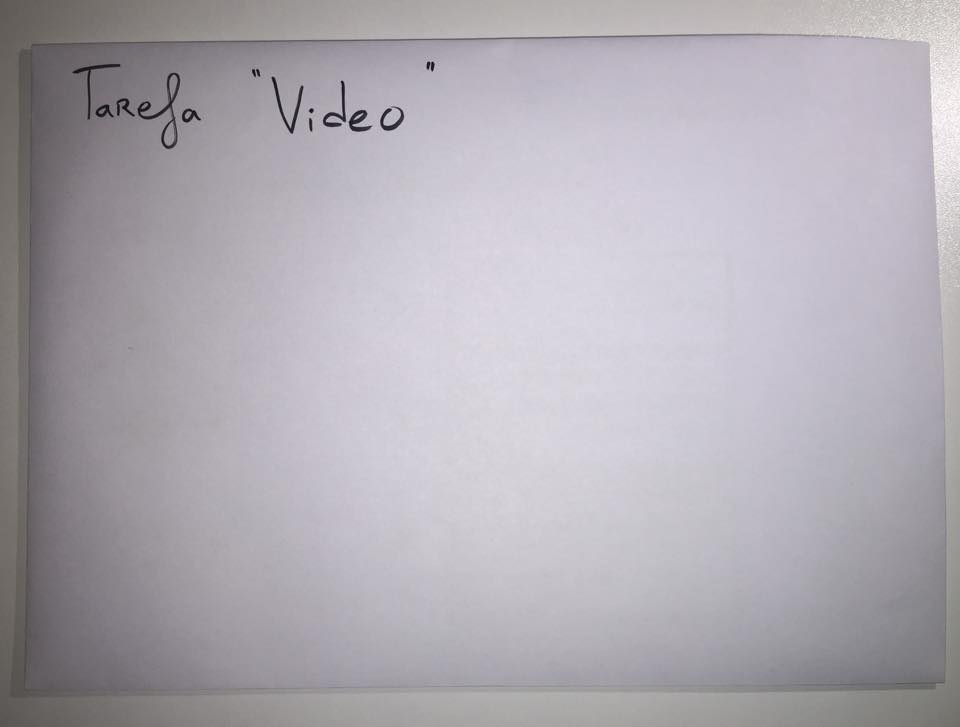 Tarefa "Video"